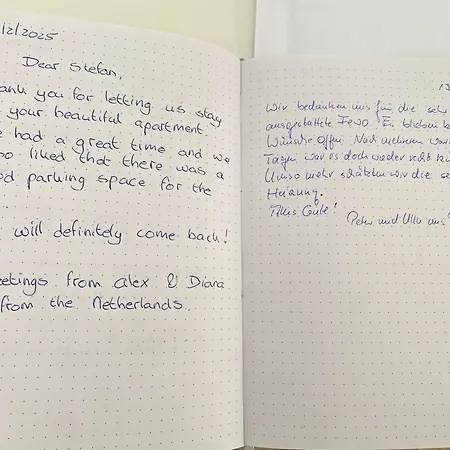 /2/2025
Dear Stefan,
ank you for letting us stay
your beautiful apartment.
e had a great time and we
oo liked that there was a
od parking space for the
will definitely come back!
eetings from Alex & Diana
from the Netherlands.
13
Wir bedanken uns für die seh
ausgestattete FeWo. Es blieben k
Wünsche offen. Nach mehreren war
Tagen war es doch wieder recht k
Umso mehr schätzten wir die se
Heizung.
Alles Gute!
Peter und Ulla aus